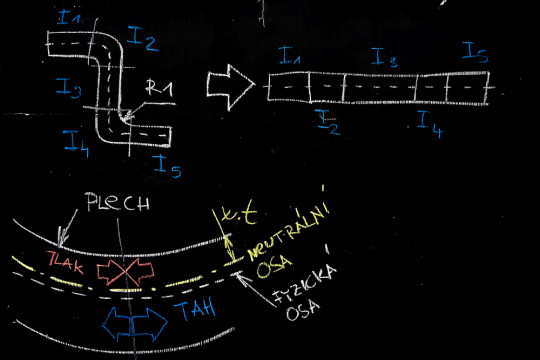 I1
I2
I3
R1
I4
I5
I1
I3
I5
I2
I4
PLECH
x.t
NEUTRÁLNÍ
OSA
TLAK
FYZICKÁ
OSA
TAH